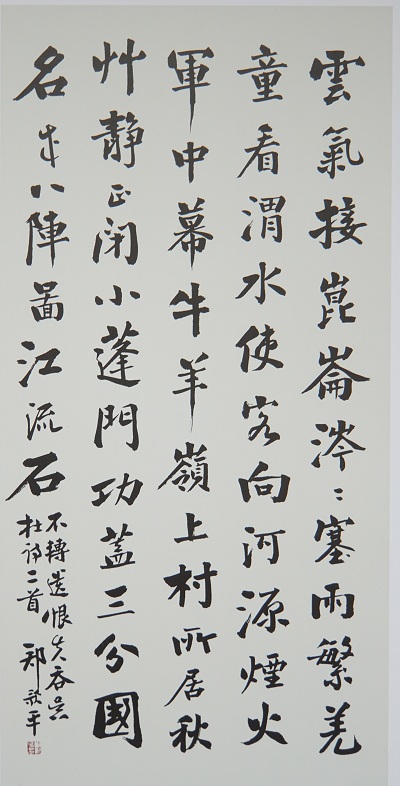 雲氣接崑崙涔〻塞雨繁羌
童看渭水使客向河源煙火
軍中幕牛羊嶺上村所居秋
艸靜正閉小蓬門功蓋三分國
名成八陣圖江流石
不轉遺恨失吞吳
杜詩二首 郑歌平